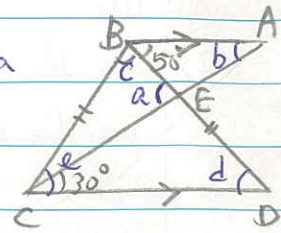 B A
c 50° b
a a E
e 30° d
C D